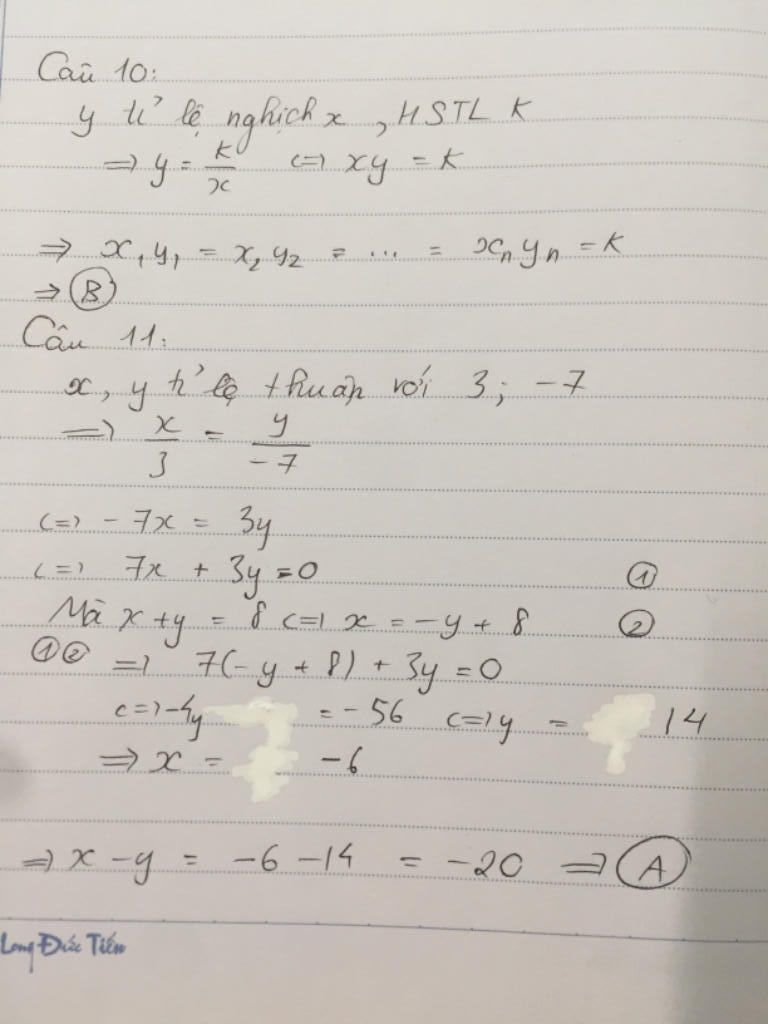 Câu 10:
y tỉ lệ nghịch x, HSTL K
=> y = K/x <=> xy = K
=> x₁y₁ = x₂y₂ = ... = xₙyₙ = K
=> B
Câu 11:
x, y tỉ lệ thuận với 3; -7
=> x/3 = y/-7
<=> -7x = 3y
<=> 7x + 3y = 0 ①
Mà x+y = 8 <=> x = -y + 8 ②
①② => 7(-y + 8) + 3y = 0
<=> -4y = -56 <=> y = 14
=> x = -6
=> x - y = -6 - 14 = -20 => A
Long Đức Tiến